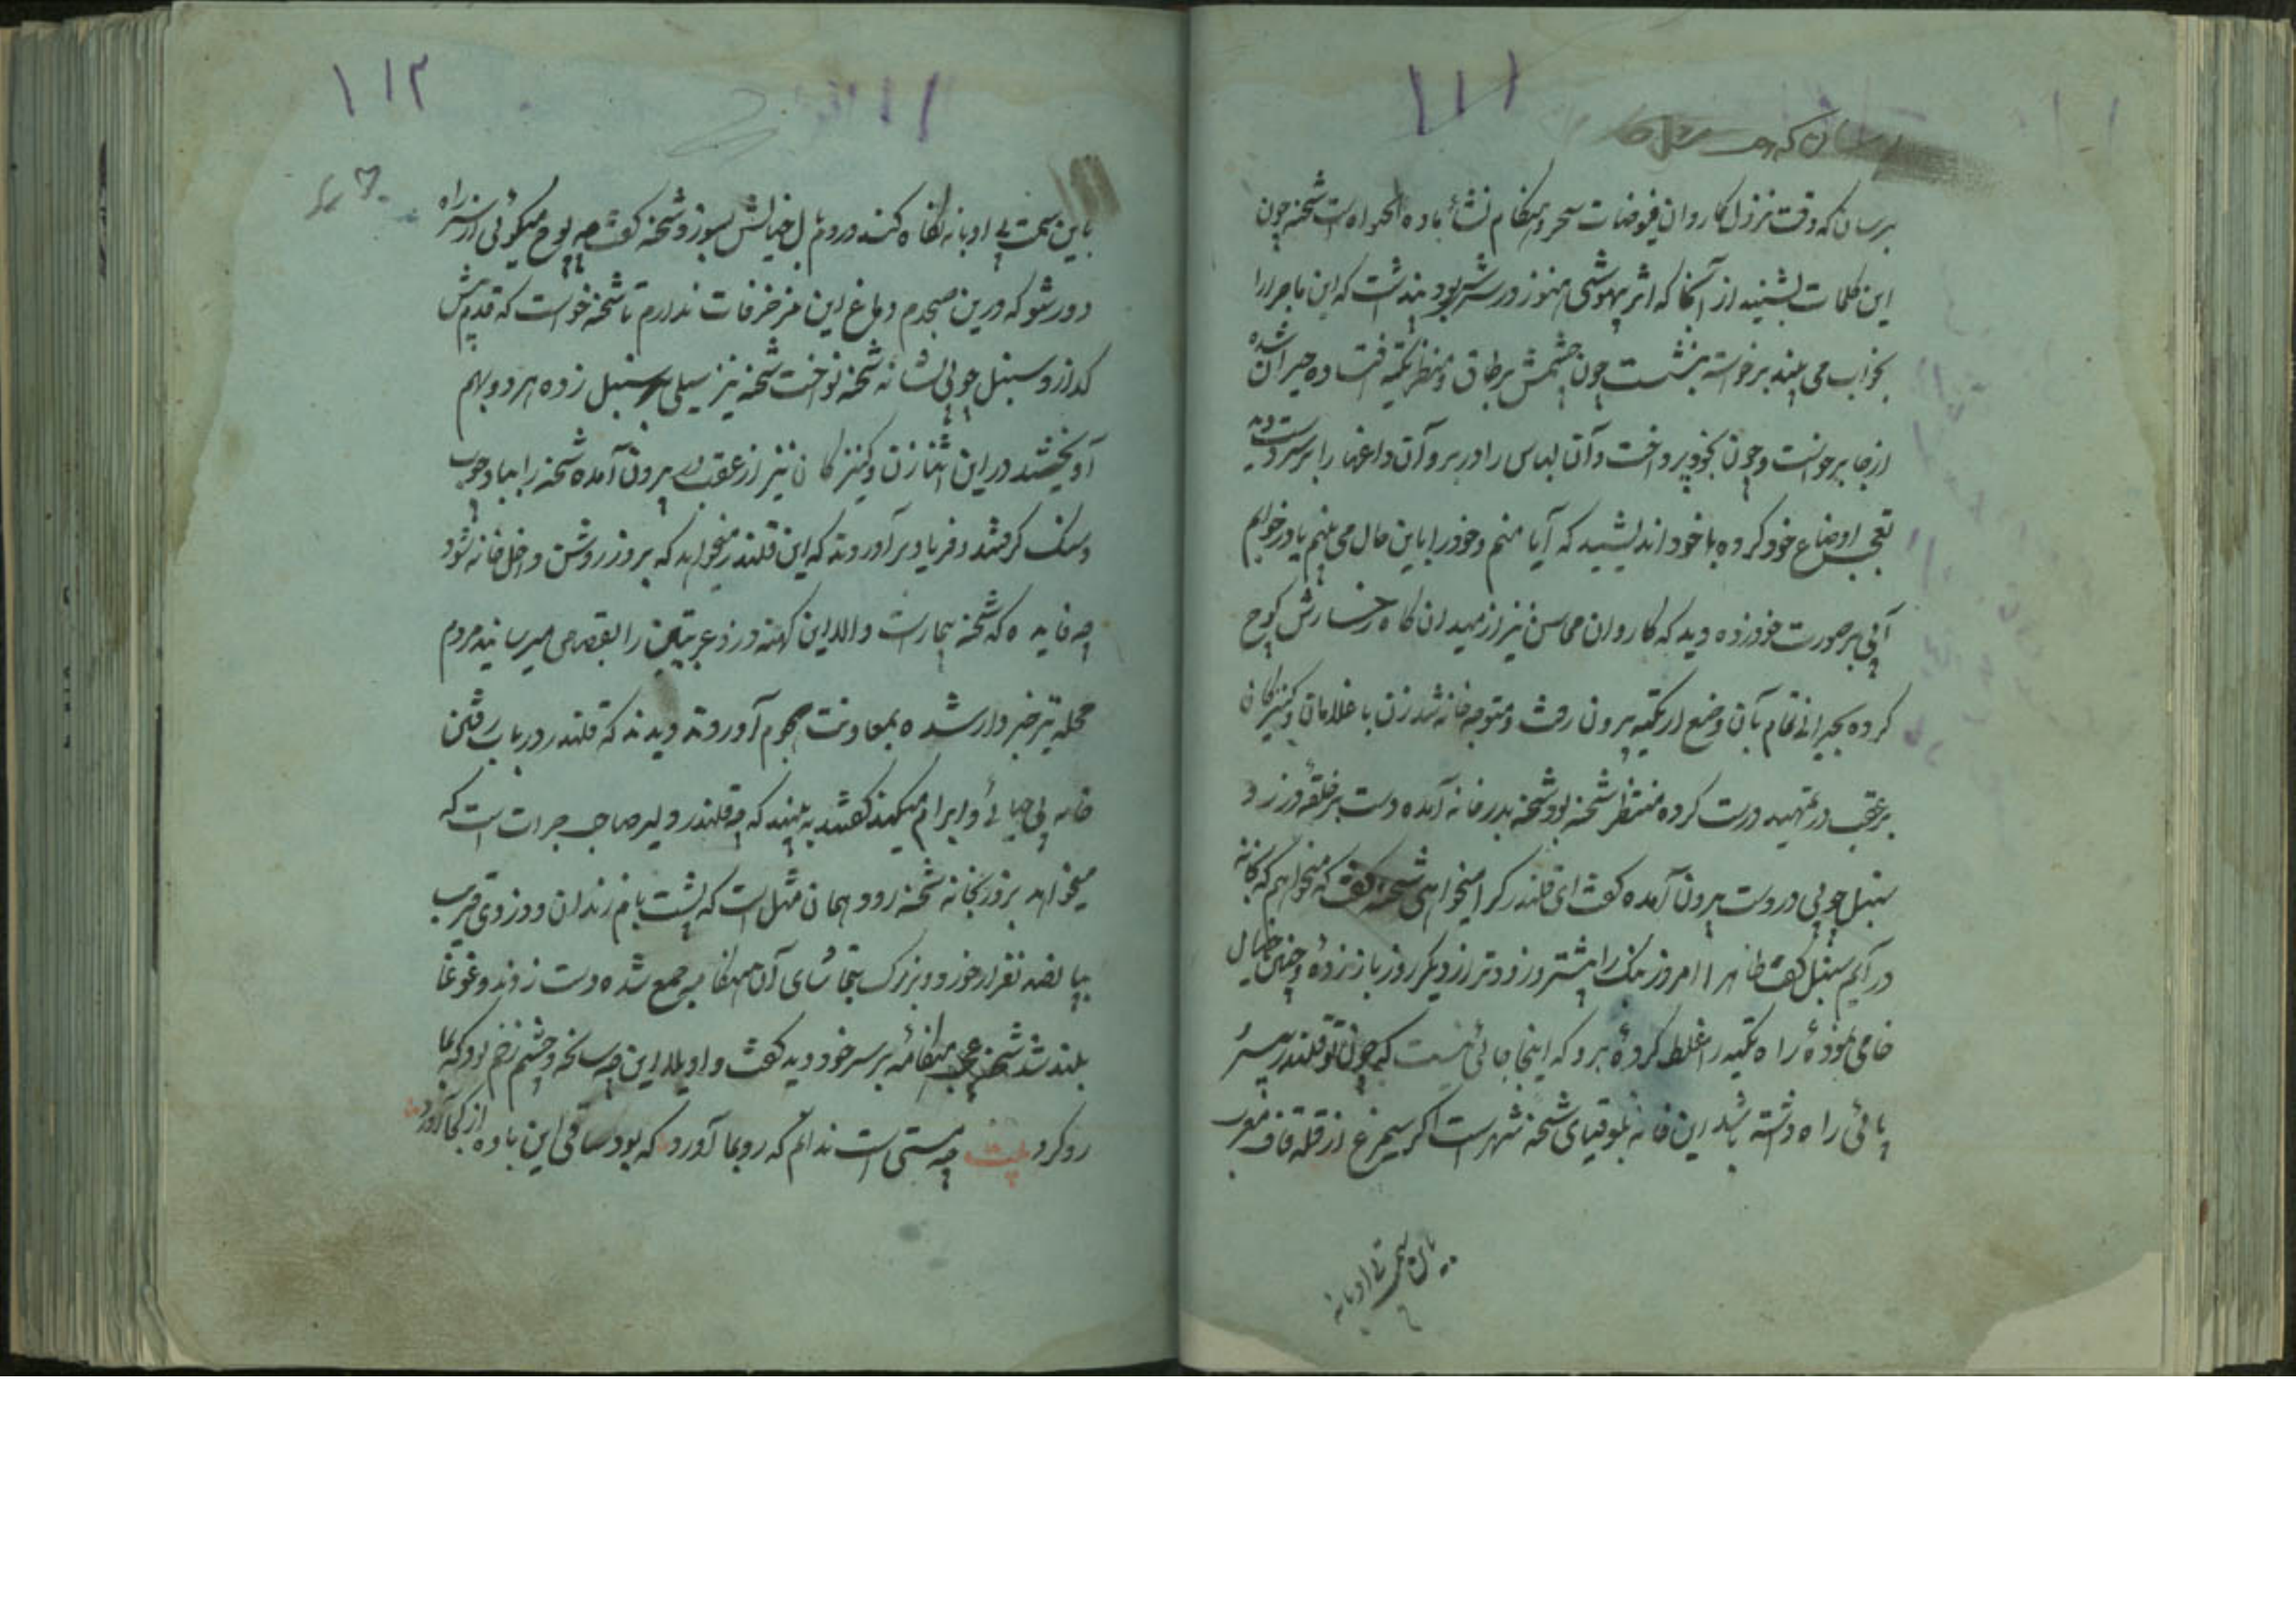 ۱۱۱
برسان که وقت نزول کاروان فیوضات سحر و هنگام نشأ باده الحمراه است شحنه چون
این کلمات بشنید از آنجا که اثر بیهوشی هنوز در سرش بود پنداشت که این ماجرا را
بخواب می بیند برخواسته بنشست چون چشمش بر طاق و منظر تکیه افتاده حیران شده
از جا برخواست و چون بخود پرداخت و آن لباس را در بر و آن داغها را بر سر و دست دید
تعجب اوضاع خود کرده با خود اندیشید که آیا منم و خود را باین حال می بینم یا در خوابم
آبی بر صورت خود زده دید که کاروان محاسن نیز از میدان گاه رخسارش کوچ
کرده بحیرانی تمام بآن وضع از تکیه بیرون رفت و متوجه خانه شد زن با غلامان و کنیزکان
بر عقب در تمهید درست کرده منتظر شحنه بود شحنه بدر خانه آمده دست بر حلقه در زد
سنبل چوبی در دست بیرون آمده گفت ای قلندر کرا میخواهی شحنه گفت که میخواهم که بخانه
در آیم سنبل گفت ظاهرا امروز بنک را پیشتر و زودتر از دیگر روز باز زدهٔ و چنین خیال
خامی نمودهٔ راه تکیه را غلط کردهٔ برو که اینجا جائی نیست که چون تو قلندر بیسر
پائی راه داشته باشد این خانه بلوقیای شحنه شهر است اگر سیمرغ از قلهٔ قاف مغرب
باین سمت بی ادبانه
۱۱۲
باین سمت بی ادبانه نگاه کند در دم بال خیالش بسوزد شحنه گفت چه پوچ میگوئی از سر راه
دور شو که درین صبحدم دماغ این مزخرفات ندارم تا شحنه خواست که قدم پیش
گذارد سنبل چوبی بشانه شحنه نواخت شحنه نیز سیلی بر سنبل زده هر دو بهم
آویختند در این اثنا زن و کنیزکان نیز از عقب در بیرون آمده شحنه را بباد چوب
و سنک گرفتند و فریاد بر آوردند که این قلندر میخواهد که بروز روشن داخل خانه شود
چه فایده که شحنه بیمار است والا این کهنه دزد عرب را بقصاص میرسانید مردم
محله نیز خبردار شده بمعاونت هجوم آوردند دیدند که قلندر در باب رفتن
خانه بی حیائی و ابرام میکند گفتند ببینید که چه قلندر دلیر صاحب جرات است که
میخواهد بزور بخانه شحنه رود و همان مثل است که پشت بام زندان و دزدی قریب
پانصد نفر از خورد و بزرک بتماشای آن هنگامه جمع شده دست زدند و غوغا
بلند شد شحنه عجب هنگامهٔ بر سر خود دید گفت واویلا این چه سانحه و چشم زخم بود که بما
رو کرد بیت چه مستی است ندانم که رو بما آورد که بود ساقی این باده از کجا آورد